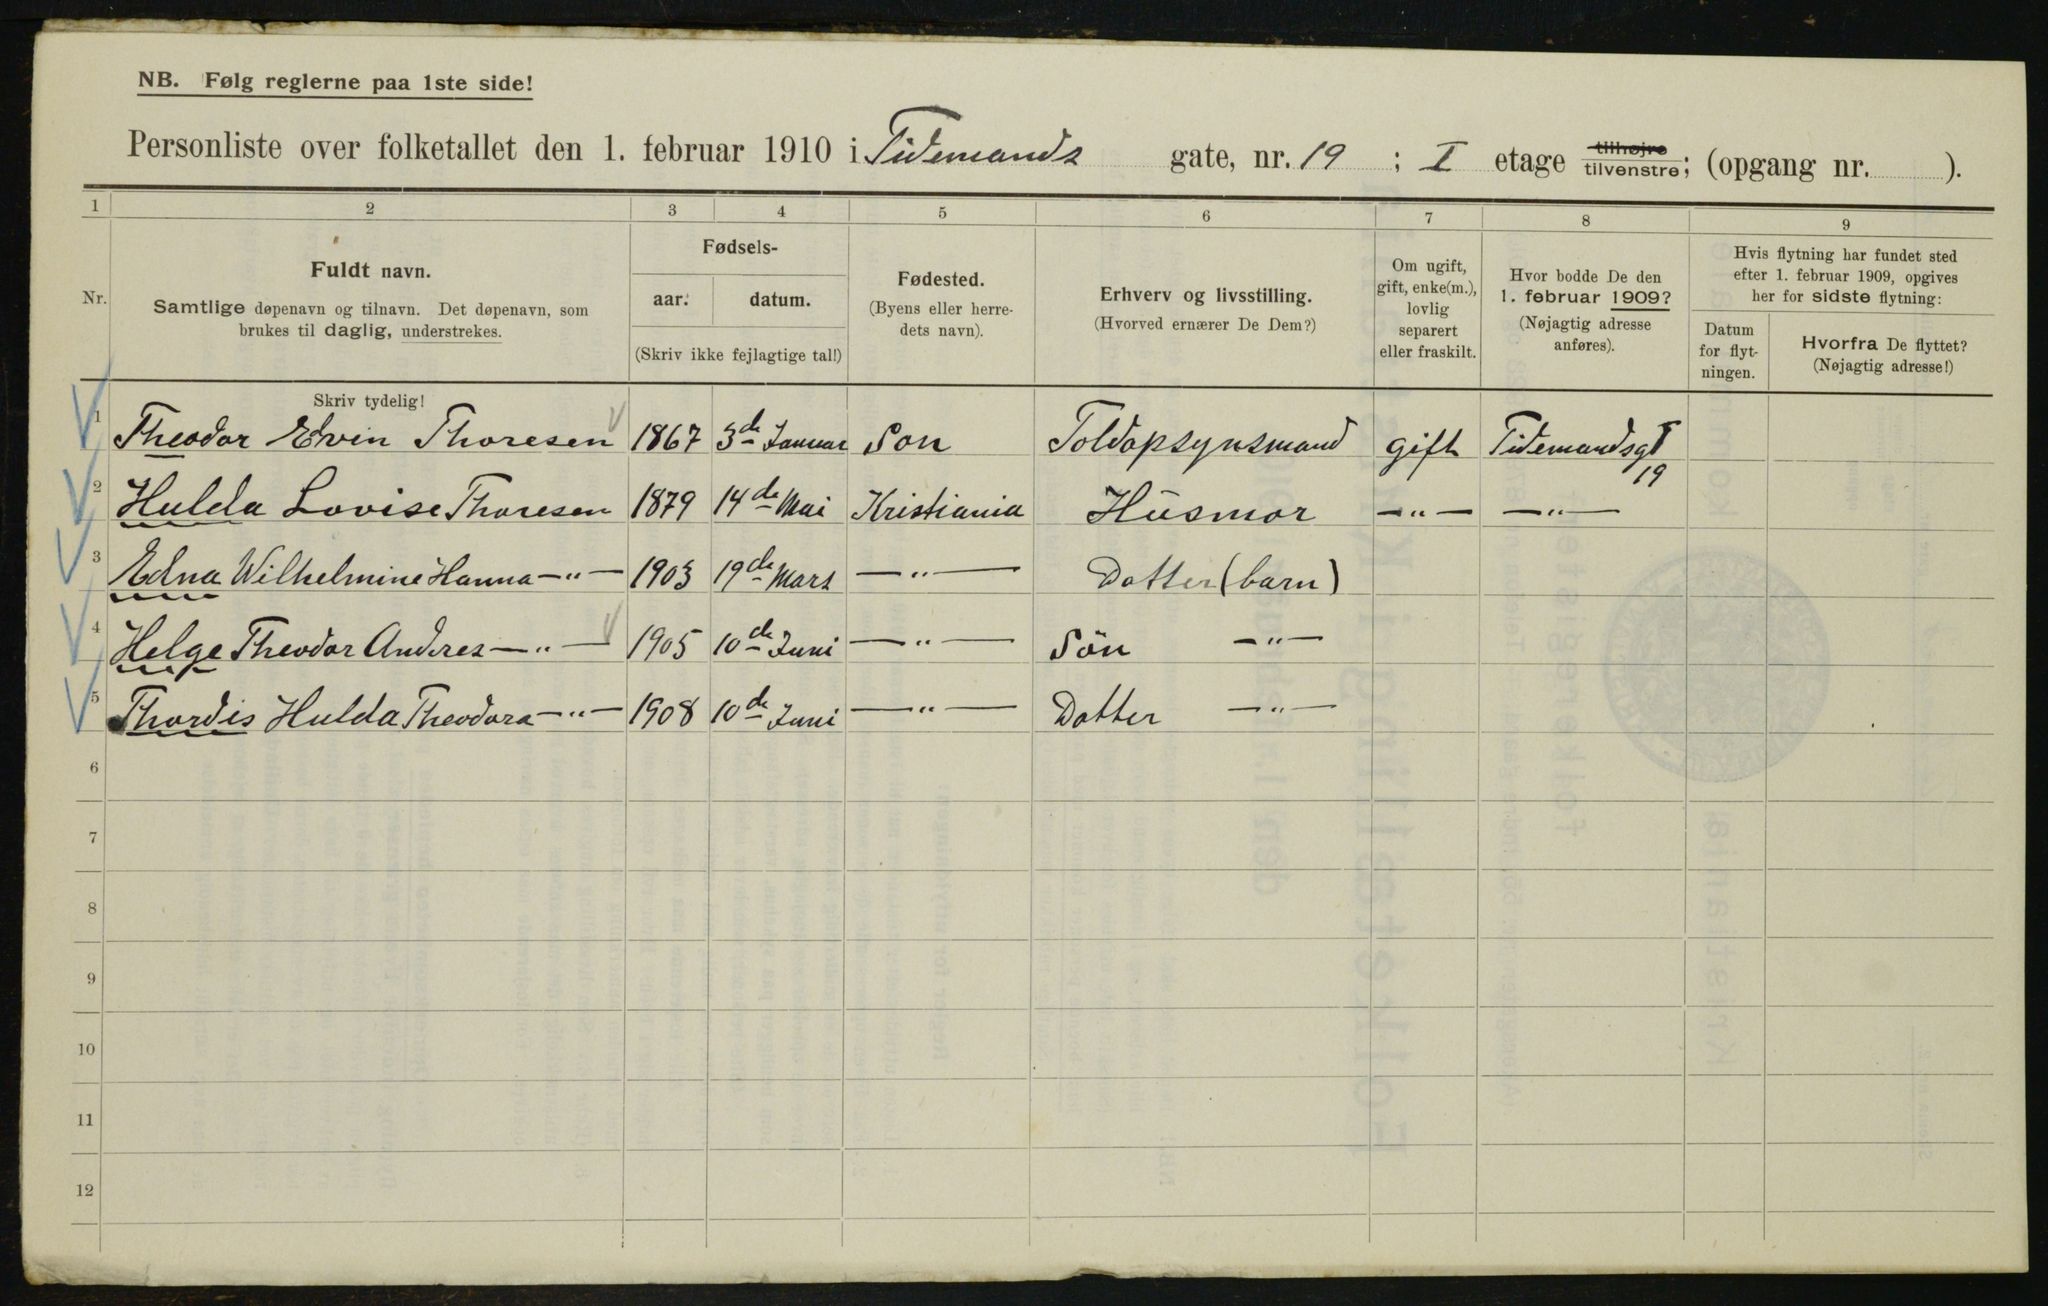 NB. Følg reglerne paa 1ste side!
Personliste over folketallet den 1. februar 1910 i Tidemands gate, nr. 19 ; I etage tilhøjre tilvenstre; (opgang nr. ).
1 2 3 4 5 6 7 8 9
Nr.
Fuldt navn.
Samtlige døpenavn og tilnavn. Det døpenavn, som
brukes til daglig, understrekes.
Fødsels-
aar. datum.
(Skriv ikke fejlagtige tal!)
Fødested.
(Byens eller herre-
dets navn).
Erhverv og livsstilling.
(Hvorved ernærer De Dem?)
Om ugift,
gift, enke(m.),
lovlig
separert
eller fraskilt.
Hvor bodde De den
1. februar 1909?
(Nøjagtig adresse
anføres).
Hvis flytning har fundet sted
efter 1. februar 1909, opgives
her for sidste flytning:
Datum
for flyt-
ningen.
Hvorfra De flyttet?
(Nøjagtig adresse!)
Skriv tydelig!
1 Theodor Edvin Thoresen 1867 3de Januar Son Toldopsynsmand gift Tidemandsgt
19
2 Hulda Lovise Thoresen 1879 14de Mai Kristiania Husmor —"— —"—
3 Edna Wilhelmine Hanna —"— 1903 19de Mars —"— Datter (barn)
4 Helge Theodor Andres —"— 1905 10de Juni —"— Sön —"—
5 Thordis Hulda Theodora —"— 1908 10de Juni —"— Datter —"—
6
7
8
9
10
11
12